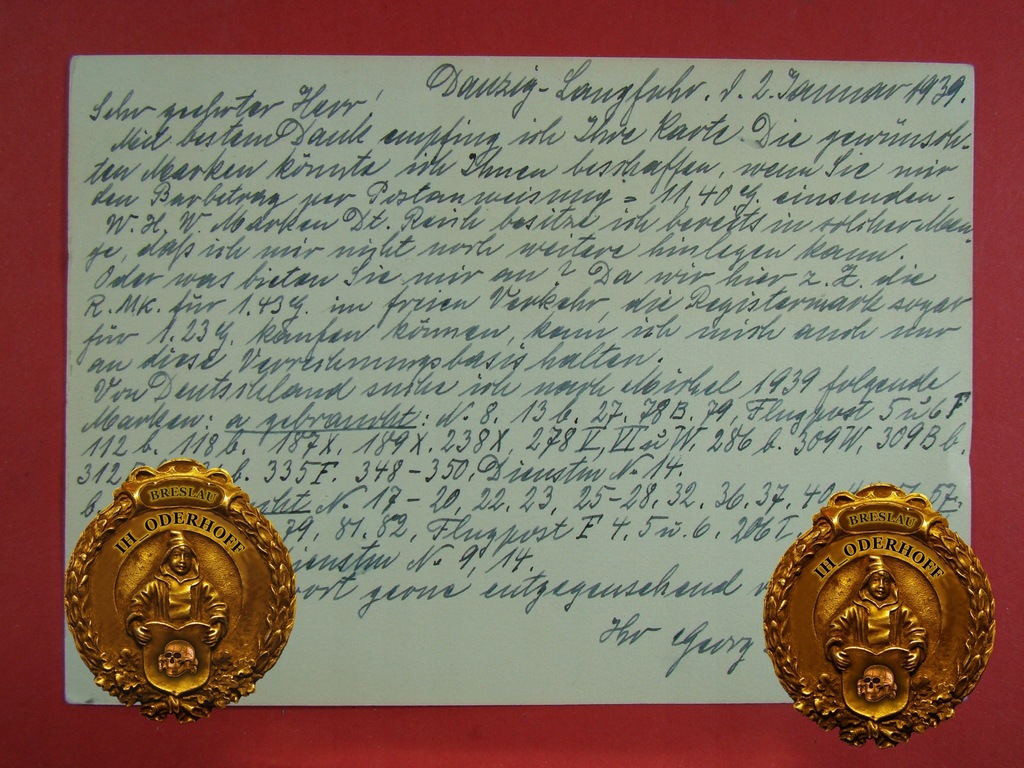 Danzig-Langfuhr. d. 2. Januar 1939.
Sehr geehrter Herr!
Mit bestem Dank empfing ich Ihre Karte. Die gewünsch-
ten Marken könnte ich Ihnen beschaffen, wenn Sie mir
den Barbetrag per Postanweisung = 11,40 G. einsenden.
W. H. W. Marken Dt. Reich besitze ich bereits in solcher Men-
ge, daß ich mir nicht noch weitere hinlegen kann.
Oder was bieten Sie mir an? Da wir hier z. Z. die
R. Mk. für 1.43 G. im freien Verkehr, die Registermark sogar
für 1.23 G. kaufen können, kann ich mich auch nur
an diese Verrechnungsbasis halten.
Von Deutschland suche ich nach Michel 1939 folgende
Marken: a gebraucht: N. 8. 13 b. 27. 78 B. 79, Flugpost 5 u 6 F
112 b. 118 b. 187 X. 189 X. 238 X, 278 V, VI u W. 286 b. 309 W, 309 B b.
312 b. 335 F. 348-350, Dienstm N. 14.
b. N. 17-20, 22. 23, 25-28. 32. 36. 37. 40 57.
79. 81. 82, Flugpost F 4. 5 u. 6. 206 I
Dienstm N. 9, 14.
gerne entgegensehend
Ihr Georg
BRESLAU
IH_ODERHOFF
BRESLAU
IH_ODERHOFF